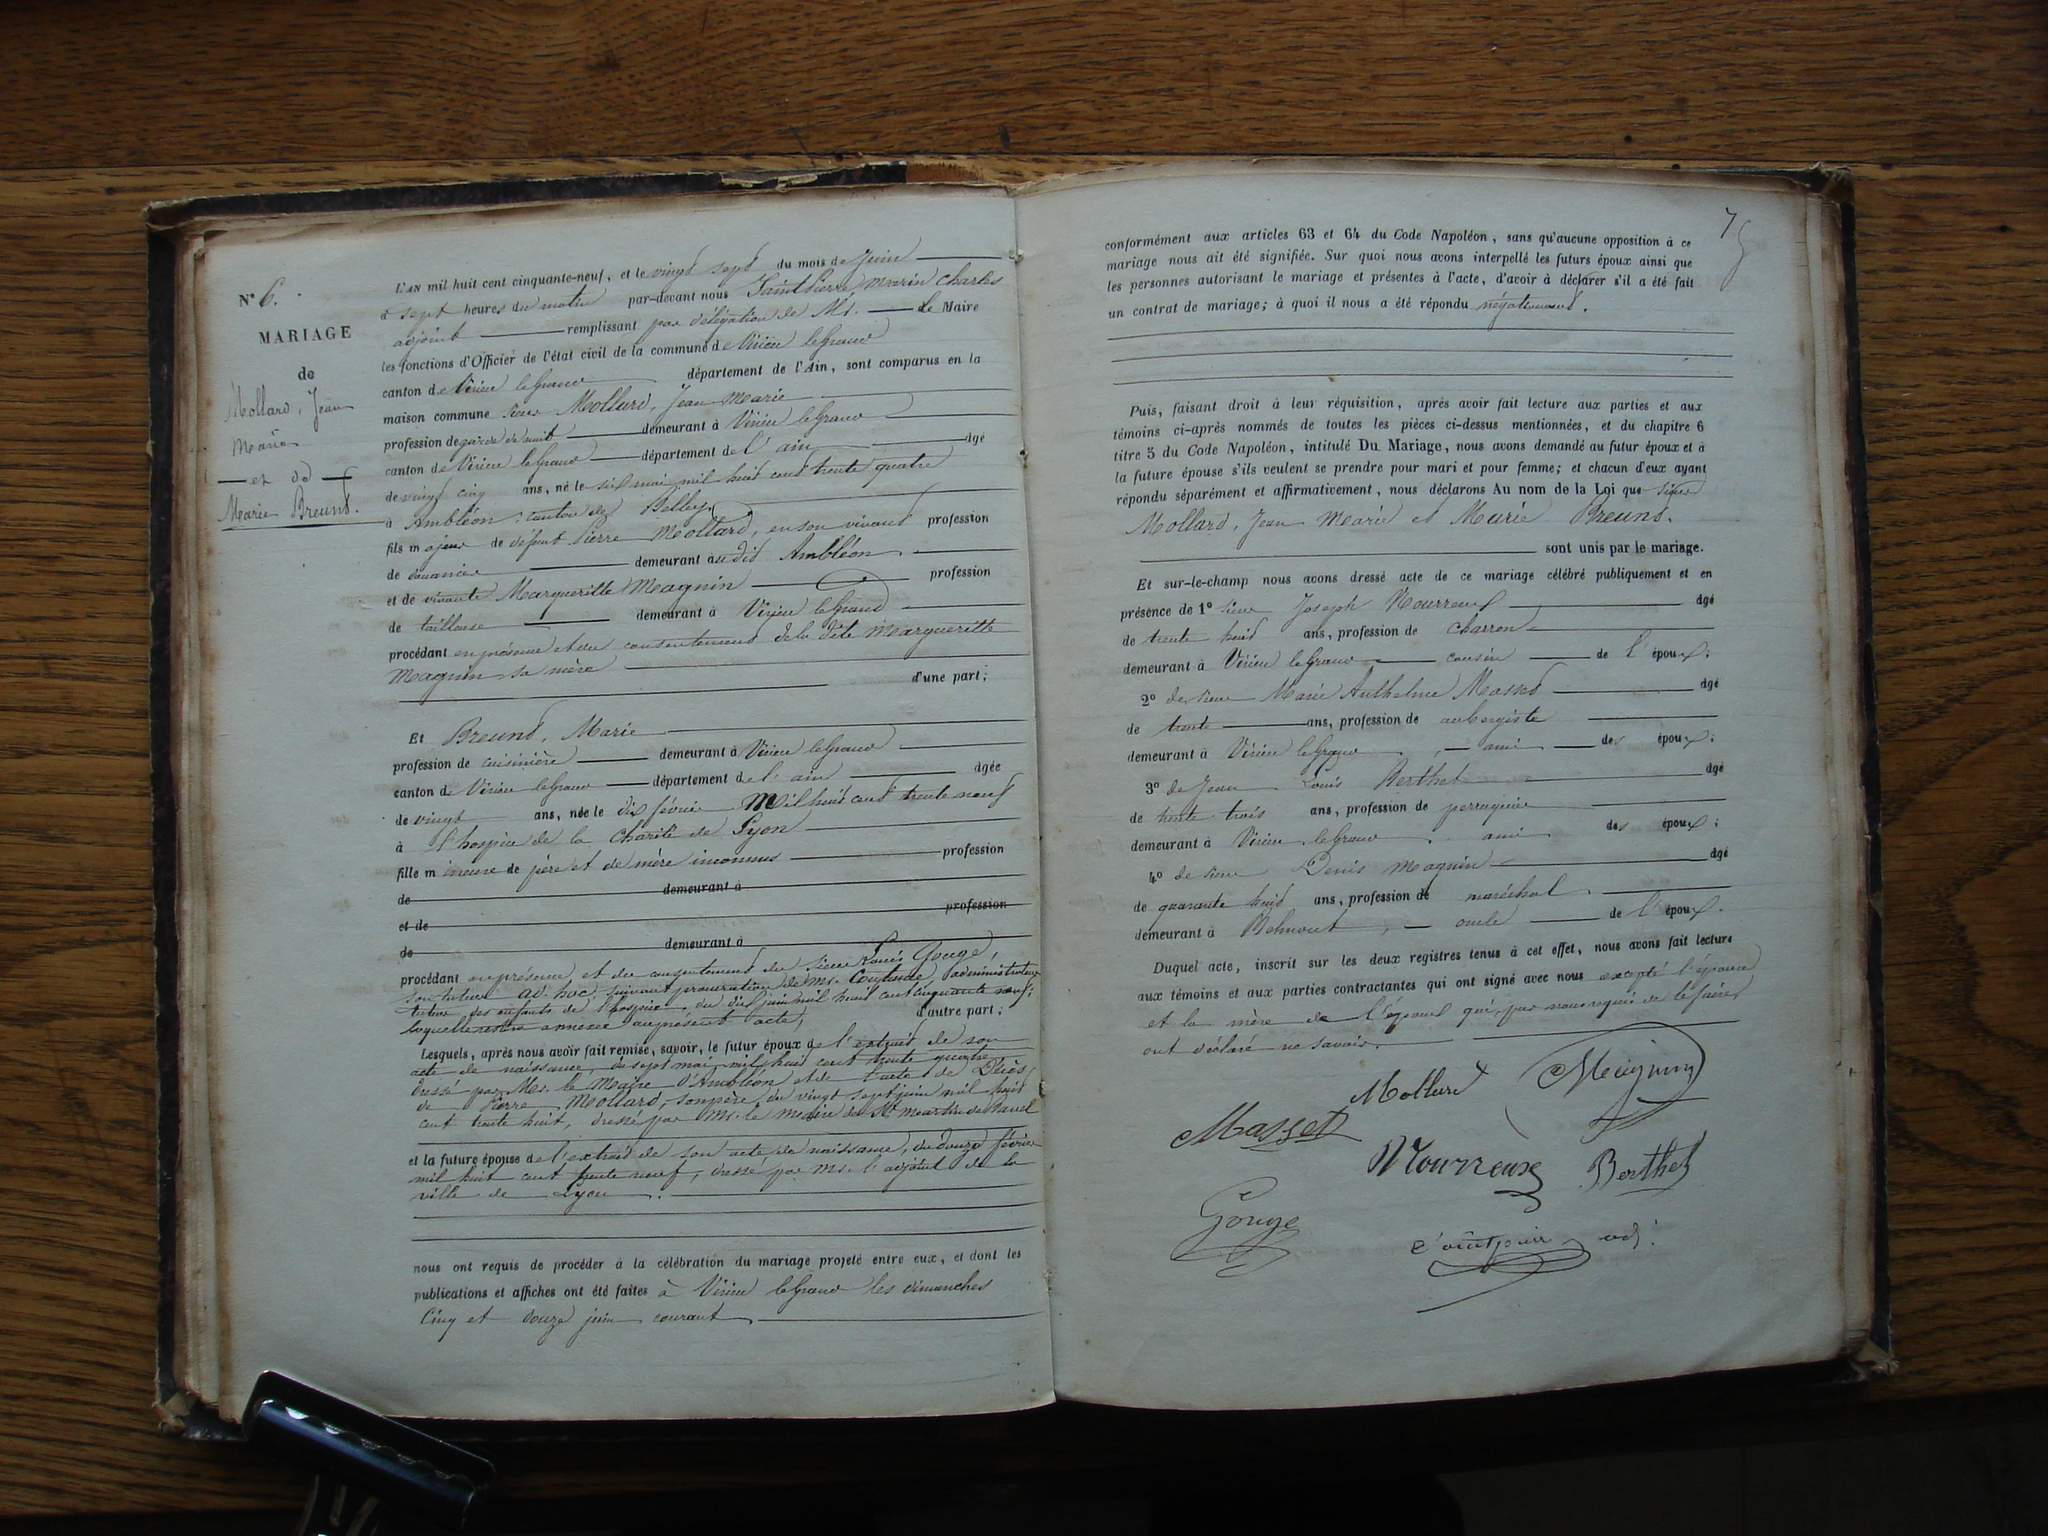 N° 6.
MARIAGE
de
Mollard, Jean
Marie
et de
Marie Breund.
L'AN mil huit cent cinquante-neuf, et le vingt sept du mois de Juin
à sept heures du matin par-devant nous Saint Pierre Marin Charles
adjoint remplissant par délégation de Mr. le Maire
les fonctions d'Officier de l'état civil de la commune de Virieu le Grand
canton de Virieu le Grand département de l'Ain, sont comparus en la
maison commune sieur Mollard, Jean Marie
profession de garde de nuit demeurant à Virieu le Grand
canton de Virieu le Grand département de l'ain âgé
de vingt cinq ans, né le six mai mil huit cent trente quatre
à Ambléon, canton de Belley.
fils majeur de défunt Pierre Mollard, en son vivant profession
de douanier demeurant audit Ambléon
et de vivante Margueritte Magnin profession
de tailleuse demeurant à Virieu le Grand
procédant en présence et du consentement de la dite Margueritte
Magnin sa mère
d'une part;
Et Breund, Marie
profession de cuisinière demeurant à Virieu le Grand
canton de Virieu le Grand département de l'ain âgée
de vingt ans, née le dix février Mil huit cent trente neuf
à l'hospice de la Charité de Lyon
fille mineure de père et de mère inconnus profession
de demeurant à
et de profession
de demeurant à
procédant en présence et du consentement du sieur Louis Gouge,
son tuteur ad-hoc, suivant procuration de Mr. administrateur
tuteur des enfants de l'hospice, du dix juin mil huit cent cinquante neuf;
laquelle restera annexée au présent acte, d'autre part;
Lesquels, après nous avoir fait remise, savoir, le futur époux de l'extrait de son
acte de naissance, du sept mai mil huit cent trente quatre
dressé par Mr. le Maire d'Ambléon et de l'acte de Décès
de Pierre Mollard, son père, du vingt sept juin mil huit
cent trente huit, dressé par Mr. le maire de St Martin de Bavel
et la future épouse de l'extrait de son acte de naissance, du douze février
mil huit cent trente neuf, dressé par Mr. l'adjoint de la
ville de Lyon.
nous ont requis de procéder à la célébration du mariage projeté entre eux, et dont les
publications et affiches ont été faites à Virieu le Grand les dimanches
Cinq et douze juin courant
75
conformément aux articles 63 et 64 du Code Napoléon, sans qu'aucune opposition à ce
mariage nous ait été signifiée. Sur quoi nous avons interpellé les futurs époux ainsi que
les personnes autorisant le mariage et présentes à l'acte, d'avoir à déclarer s'il a été fait
un contrat de mariage; à quoi il nous a été répondu négativement.
Puis, faisant droit à leur réquisition, après avoir fait lecture aux parties et aux
témoins ci-après nommés de toutes les pièces ci-dessus mentionnées, et du chapitre 6
titre 5 du Code Napoléon, intitulé Du Mariage, nous avons demandé au futur époux et à
la future épouse s'ils veulent se prendre pour mari et pour femme; et chacun d'eux ayant
répondu séparément et affirmativement, nous déclarons Au nom de la Loi que sieur
Mollard, Jean Marie et Marie Breund.
sont unis par le mariage.
Et sur-le-champ nous avons dressé acte de ce mariage célébré publiquement et en
présence de 1° sieur Joseph Mourreux âgé
de trente huit ans, profession de charron
demeurant à Virieu le Grand cousin de l'époux;
2° de sieur Marie Anthelme Masset âgé
de trente ans, profession de aubergiste
demeurant à Virieu le Grand, ami des époux;
3° de Jean Louis Berthet âgé
de trente trois ans, profession de perruquier
demeurant à Virieu le Grand ami des époux;
4° de sieur Denis Magnin âgé
de quarante huit ans, profession de maréchal
demeurant à Belmont, oncle de l'époux.
Duquel acte, inscrit sur les deux registres tenus à cet effet, nous avons fait lecture
aux témoins et aux parties contractantes qui ont signé avec nous excepté l'épouse
et la mère de l'époux qui, par nous requis de le faire,
ont déclaré ne savoir.
Mollard Magnin
Masset
Mourreux Berthet
Gouge
Saintpierre adj: